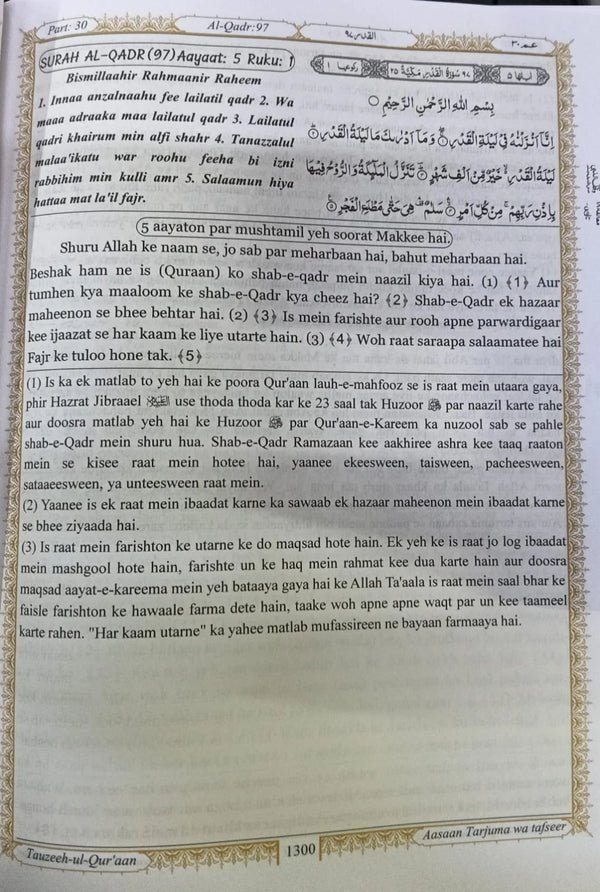 Part: 30
Al-Qadr:97
القدر ٩٧
عم ٣٠
SURAH AL-QADR (97) Aayaat: 5 Ruku: 1
Bismillaahir Rahmaanir Raheem
1. Innaa anzalnaahu fee lailatil qadr 2. Wa
maaa adraaka maa lailatul qadr 3. Lailatul
qadri khairum min alfi shahr 4. Tanazzalul
malaa'ikatu war roohu feeha bi izni
rabbihim min kulli amr 5. Salaamun hiya
hattaa mat la'il fajr.
اٰیاتها ٥ ٩٧ سُوْرَةُ الْقَدْرِ مَكِّيَّةٌ ٢٥ رکوعها ١
بِسْمِ اللهِ الرَّحْمٰنِ الرَّحِيْمِ
اِنَّاۤ اَنْزَلْنٰهُ فِيْ لَيْلَةِ الْقَدْرِ ① وَمَاۤ اَدْرٰىكَ مَا لَيْلَةُ الْقَدْرِ ②
لَيْلَةُ الْقَدْرِ خَيْرٌ مِّنْ اَلْفِ شَهْرٍ ③ تَنَزَّلُ الْمَلٰٓئِكَةُ وَالرُّوْحُ فِيْهَا
بِاِذْنِ رَبِّهِمْ مِّنْ كُلِّ اَمْرٍ ④ سَلٰمٌ هِيَ حَتّٰى مَطْلَعِ الْفَجْرِ ⑤
5 aayaton par mushtamil yeh soorat Makkee hai.
Shuru Allah ke naam se, jo sab par meharbaan hai, bahut meharbaan hai.
Beshak ham ne is (Quraan) ko shab-e-qadr mein naazil kiya hai. (1) ﴾1﴿ Aur
tumhen kya maaloom ke shab-e-Qadr kya cheez hai? ﴾2﴿ Shab-e-Qadr ek hazaar
maheenon se bhee behtar hai. (2) ﴾3﴿ Is mein farishte aur rooh apne parwardigaar
kee ijaazat se har kaam ke liye utarte hain. (3) ﴾4﴿ Woh raat saraapa salaamatee hai
Fajr ke tuloo hone tak. ﴾5﴿
(1) Is ka ek matlab to yeh hai ke poora Qur'aan lauh-e-mahfooz se is raat mein utaara gaya,
phir Hazrat Jibraeel عليه السلام use thoda thoda kar ke 23 saal tak Huzoor ﷺ par naazil karte rahe
aur doosra matlab yeh hai ke Huzoor ﷺ par Qur'aan-e-Kareem ka nuzool sab se pahle
shab-e-Qadr mein shuru hua. Shab-e-Qadr Ramazaan kee aakhiree ashra kee taaq raaton
mein se kisee raat mein hotee hai, yaanee ekeesween, taisween, pacheesween,
sataaeesween, ya unteesween raat mein.
(2) Yaanee is ek raat mein ibaadat karne ka sawaab ek hazaar maheenon mein ibaadat karne
se bhee ziyaada hai.
(3) Is raat mein farishton ke utarne ke do maqsad hote hain. Ek yeh ke is raat jo log ibaadat
mein mashgool hote hain, farishte un ke haq mein rahmat kee dua karte hain aur doosra
maqsad aayat-e-kareema mein yeh bataaya gaya hai ke Allah Ta'aala is raat mein saal bhar ke
faisle farishton ke hawaale farma dete hain, taake woh apne apne waqt par un kee taameel
karte rahen. "Har kaam utarne" ka yahee matlab mufassireen ne bayaan farmaaya hai.
Tauzeeh-ul-Qur'aan
1300
Aasaan Tarjuma wa tafseer